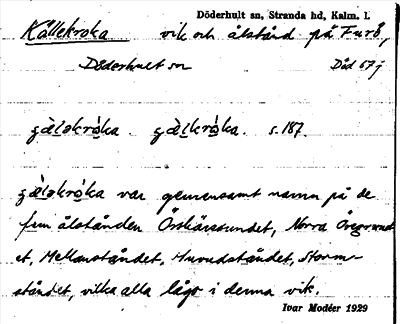 Döderhult sn, Stranda hd, Kalm. l.
Källekroka vik och ålstånd på Furö,
Döderhult sn Död 67j
gä̀lǝkrȯ́ka. gä̀lkrȯ́ka. s. 187.
gä̀lǝkrȯ́ka var gemensamt namn på de
fem ålstånden Örskärssundet, Norra Öregrund
et, Mellanståndet, Huvudståndet, Storm-
ståndet, vilka alla lågo i denna vik.
Ivar Modéer 1929